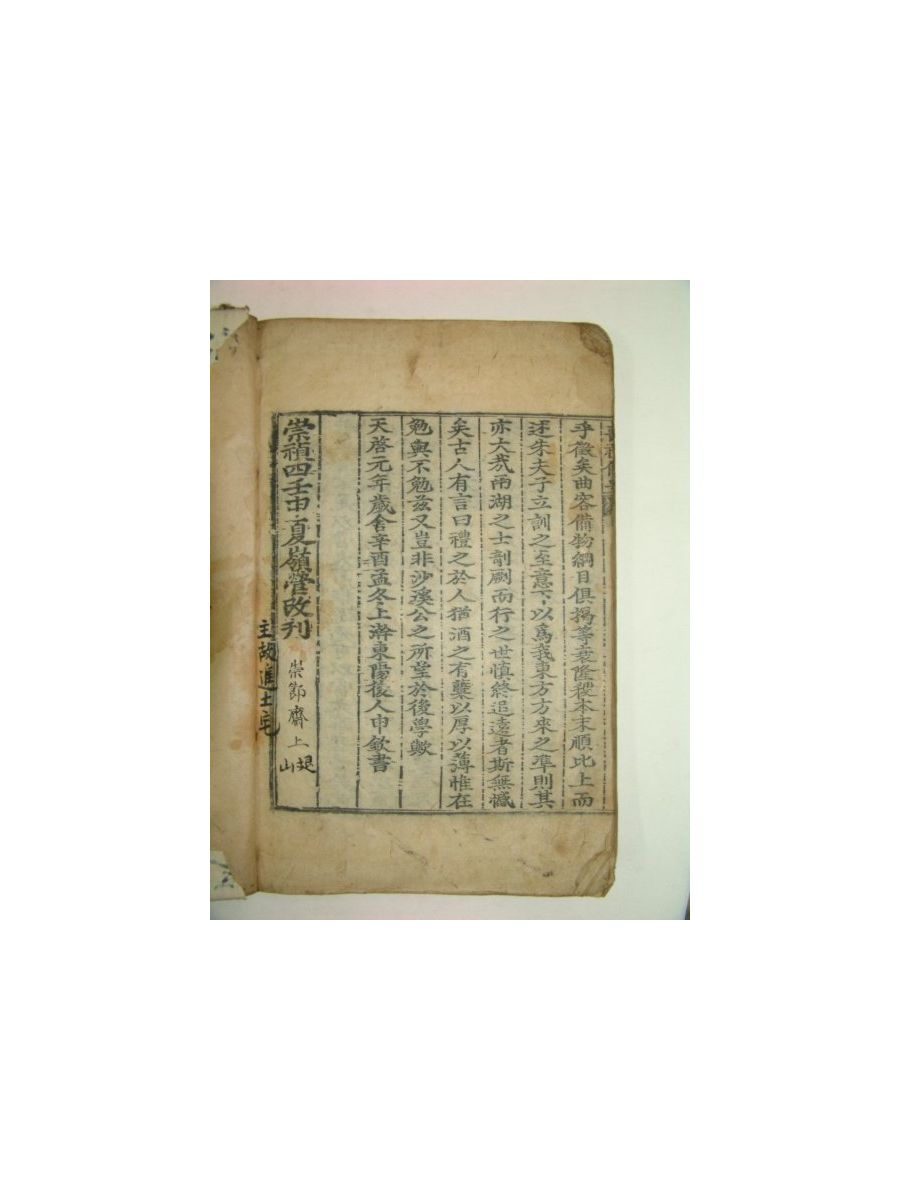 喪禮備要
乎徵矣曲容備物綱目俱揭等衰隆殺本末順比上而
述朱夫子立訓之至意下以爲我東方方來之準則其
亦大哉兩湖之士剞劂而行之世愼終追遠者斯無憾
矣古人有言曰禮之於人猶酒之有糵以厚以薄惟在
勉與不勉玆又豈非沙溪公之所望於後學歟
天啓元年歲舍辛酉孟冬上澣東陽後人申欽書
崇禎四壬申夏嶺營改刊
崇節齋上
主 進士宅